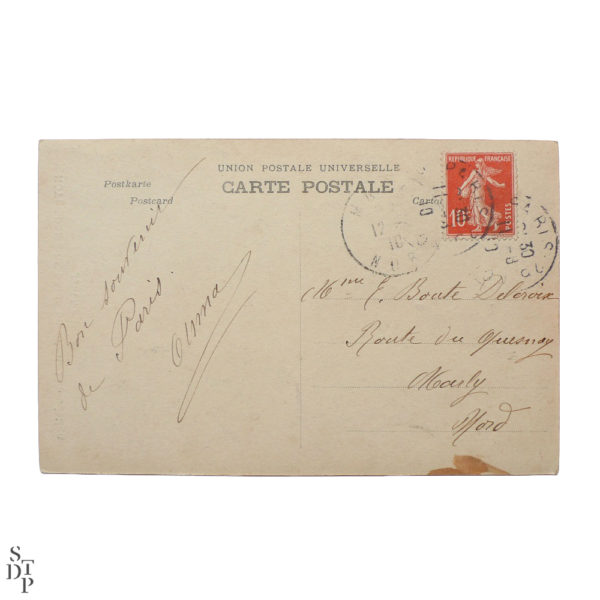 UNION POSTALE UNIVERSELLE
CARTE POSTALE
Postkarte
Postcard
RÉPUBLIQUE FRANÇAISE
10
POSTES
Bon souvenir
de Paris.
Mme Boute Delcroix
Route du Quesnoy
Marly
Nord
S
D T
P